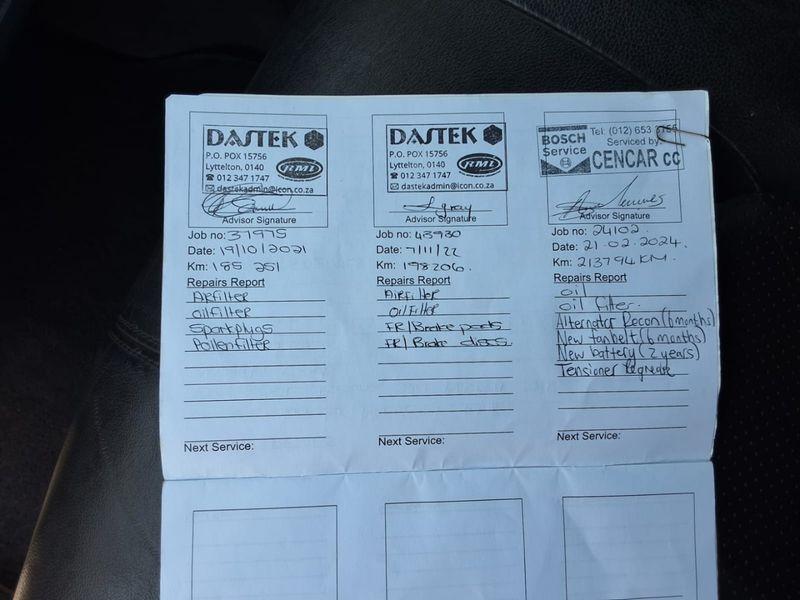 DASTEK
P.O. POX 15756
Lyttelton, 0140
RMI
☎ 012 347 1747
✉ dastekadmin@icon.co.za
Advisor Signature
Job no: 37975
Date: 19/10/2021
Km: 185 251
Repairs Report
Airfilter
oilfilter
Sparkplugs
Pollenfilter
Next Service:
DASTEK
P.O. POX 15756
Lyttelton, 0140
RMI
☎ 012 347 1747
✉ dastekadmin@icon.co.za
Advisor Signature
Job no: 43930
Date: 7/11/22
Km: 198206.
Repairs Report
Airfilter
Oilfilter
FR/Brake pads
FR/Brake discs
Next Service:
BOSCH
Service
Tel: (012) 653
Serviced by:
CENCAR cc
Advisor Signature
Job no: 24102.
Date: 21-02-2024.
Km: 213794 KM.
Repairs Report
oil
oil filter.
Alternator Recon (6 months)
New fanbelt (6 months)
New battery (2 years)
Tensioner
Next Service: